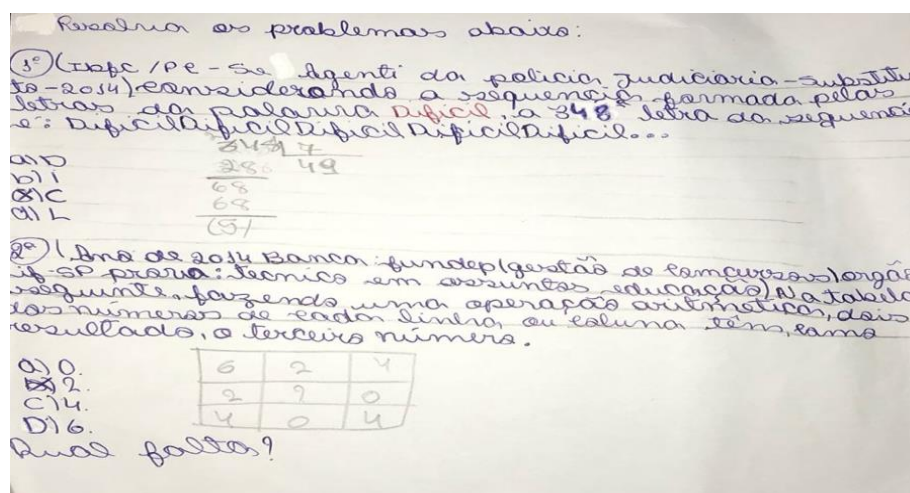 Resolva os problemas abaixo:
1º) (IBFC/PC-SE Agenti da policia Judiciaria-Substitu
to-2014) considerando a sequencia formada pelas
letras da palavra Dificil, a 348ª letra da sequencia
é: DificilDificilDificilDificilDificil...
348 7
a) D 28 49
b) i 68
c) C 68
d) L (5)
2ª) (Ano de 2014 Banca: fundep (gestão de concursos) orgão
if-SP prova: tecnico em assuntos educação) Na tabela
seguinte, fazendo uma operação aritmética, dois
dos números de cada linha ou coluna têm, como
resultado, o terceiro número.
a) 0. 6 2 4
2. 2 ? 0
C) 4. 4 0 4
D) 6.
Qual falta?